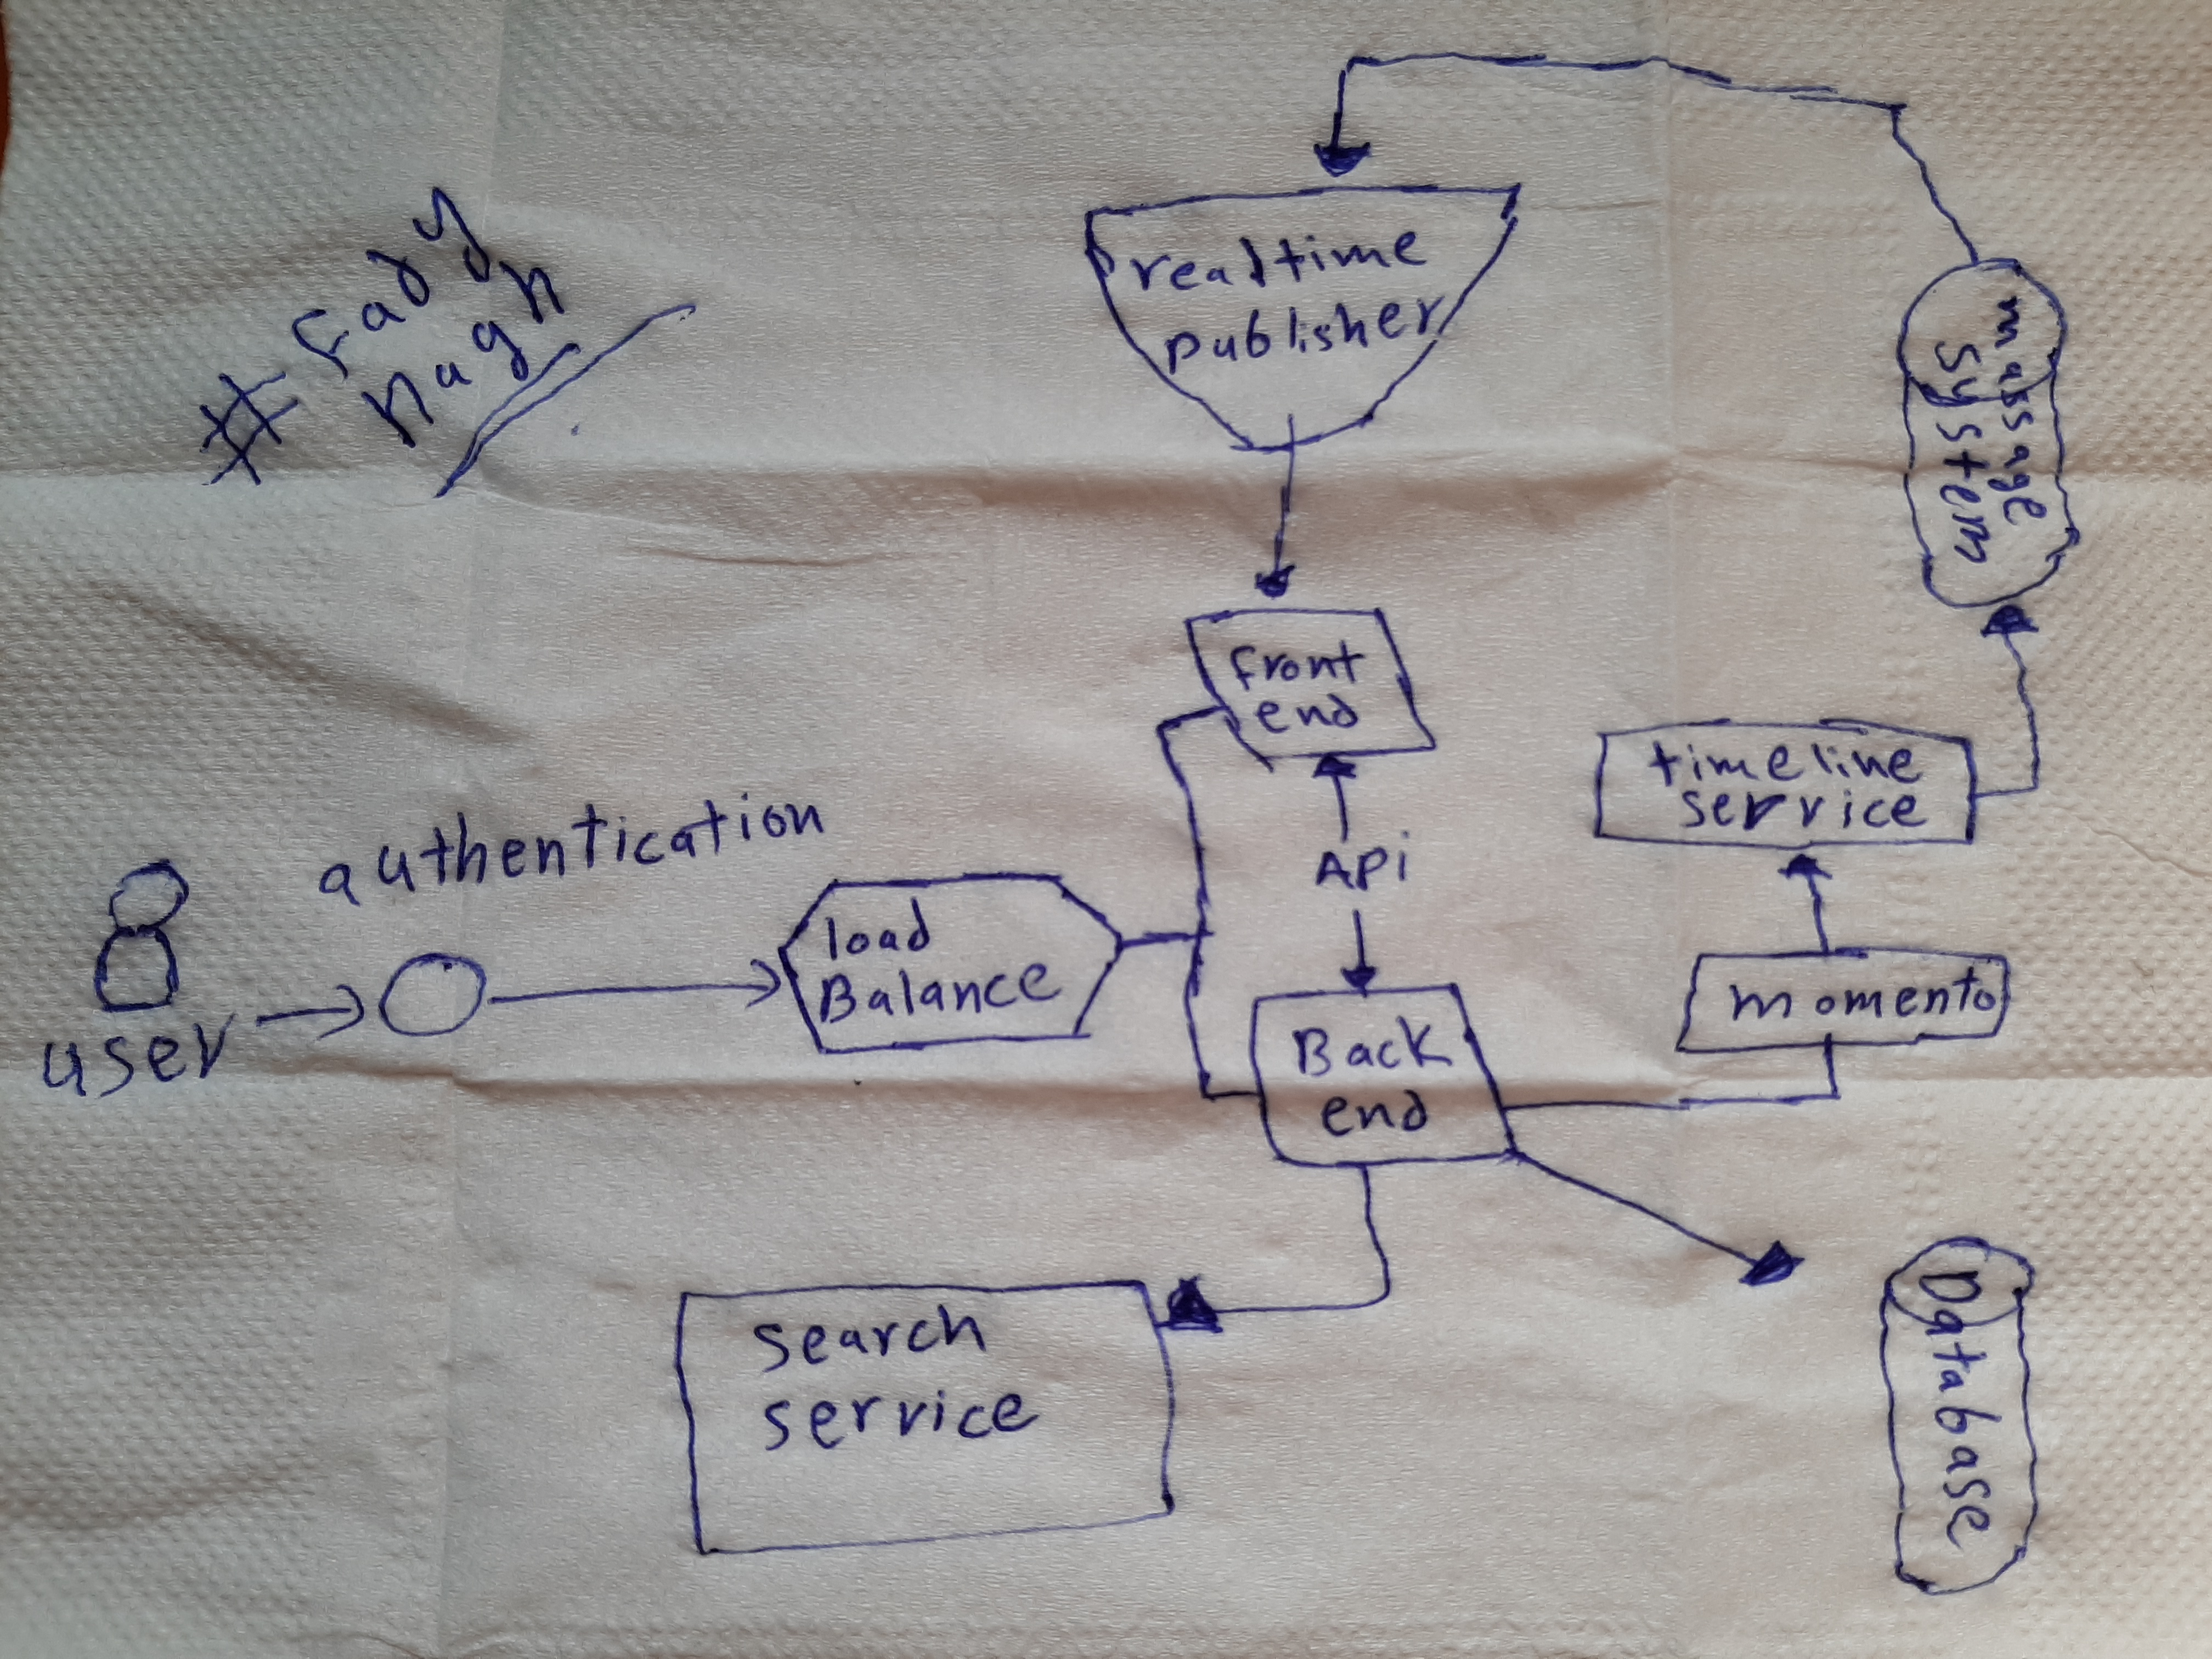 # Fady
nagn
realtime
publisher
massage
system
front
end
timeline
service
API
authentication
user
load
Balance
momento
Back
end
search
service
Database